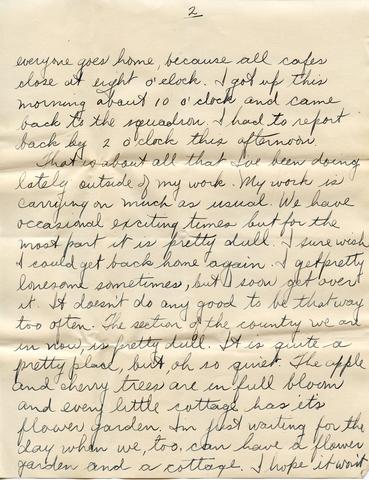 2
everyone goes home, because all cafes
close at eight o'clock. I got up this
morning about 10 o'clock and came
back to the squadron. I had to report
back by 2 o'clock this afternoon.
That is about all that I've been doing
lately outside of my work. My work is
carrying on much as usual. We have
occasional exciting times but for the
most part it is pretty dull. I sure wish
I could get back home again. I get pretty
lonesome sometimes, but I soon get over
it. It doesn't do any good to be that way
too often. The section of the country we are
in now, is pretty dull. It is quite a
pretty place, but oh so quiet. The apple
and cherry trees are in full bloom
and every little cottage has its
flower garden. I'm just waiting for the
day when we, too, can have a flower
garden and a cottage. I hope it won't